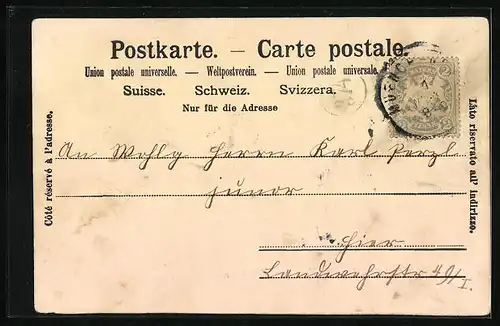 Postkarte. — Carte postale.
Union postale universelle. — Weltpostverein. — Union postale universale.
Suisse. Schweiz. Svizzera.
Nur für die Adresse
Côté réservé à l'adresse.
Lato riservato all' indirizzo.
2
An Wohlg Herrn Karl Perzl
junor
Hier
Landwehrstr 49/I.